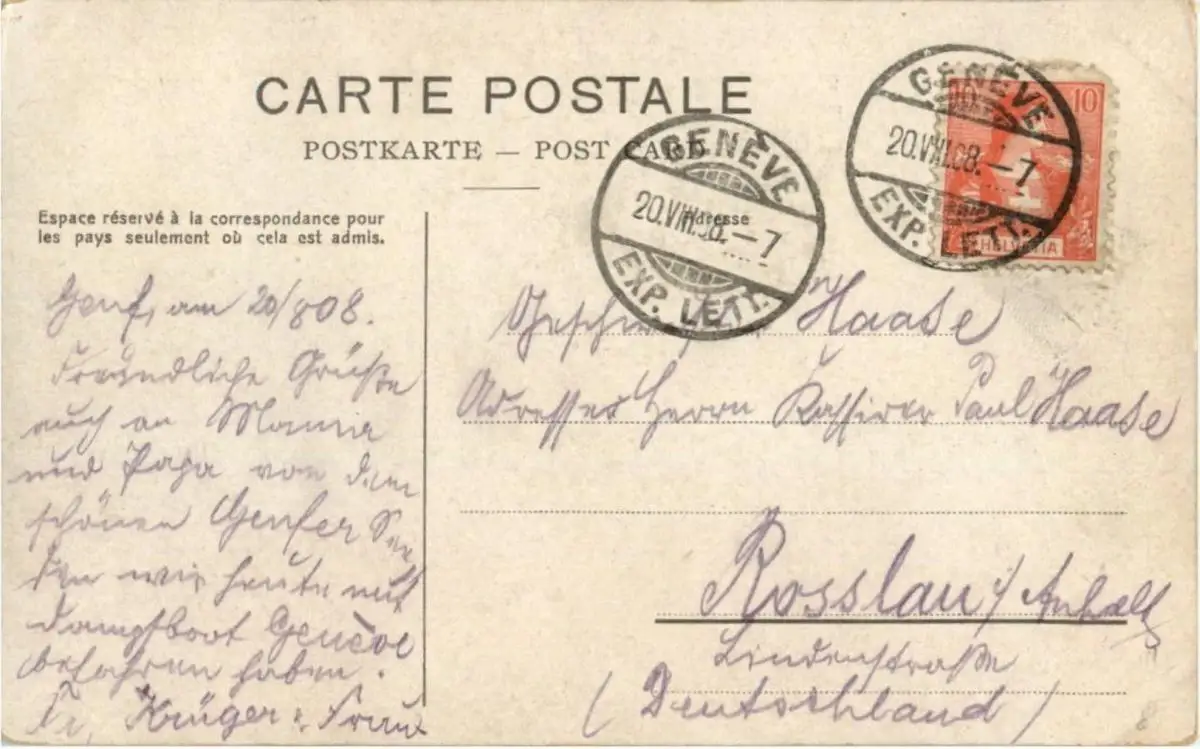 CARTE POSTALE
POSTKARTE — POST CARD
Espace réservé à la correspondance pour
les pays seulement où cela est admis.
Adresse
GENÈVE
20.VIII.08.–7
EXP. LETT.
GENÈVE
20.VIII.08.–7
EXP. LETT.
10 10
HELVETIA
Genf, am 20/8 08.
Freundliche Grüße
auch an Mama
und Papa von dem
schönen Genfer See,
den wir heute mit
Dampfboot Genève
befahren haben.
Fr. Krüger u. Frau
Haase
Adresse Herrn Kassirer Paul Haase
Rosslau i/Anhalt
Lindenstraße
(Deutschland)